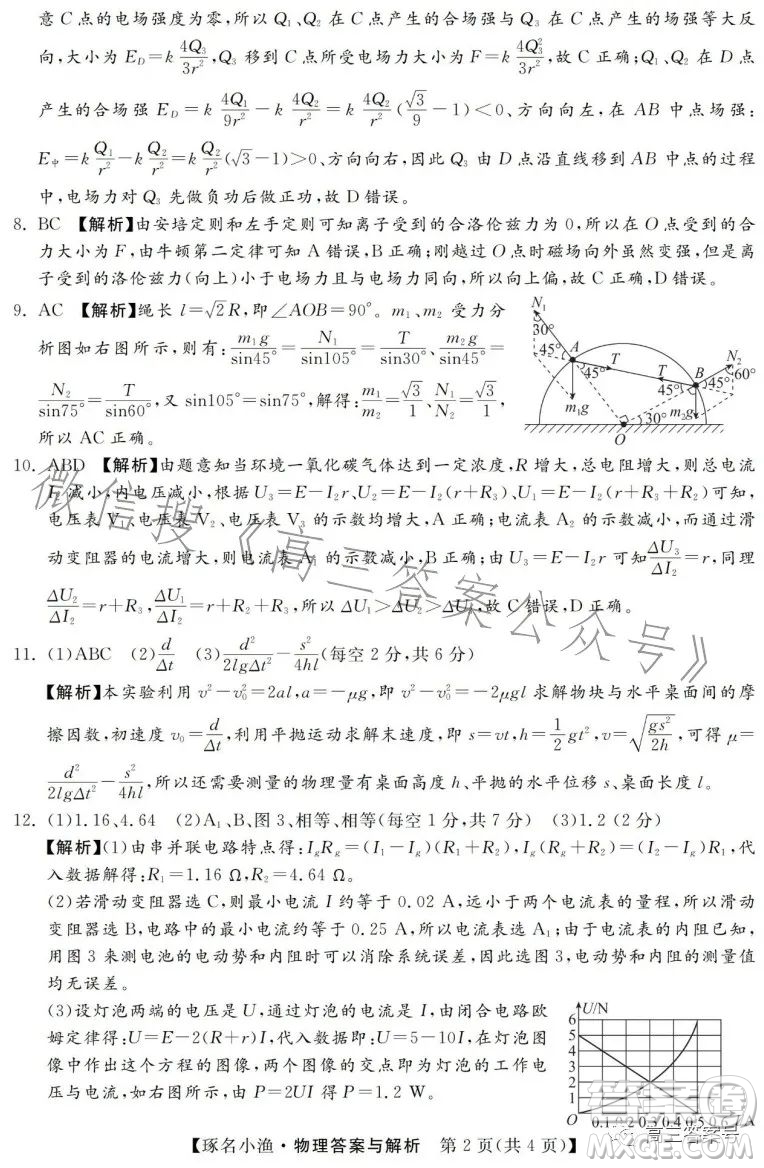 意 C 点的电场强度为零,所以 Q₁、Q₂ 在 C 点产生的合场强与 Q₃ 在 C 点产生的场强等大反
向,大小为 E_D=k 4Q₃/3r²,Q₃ 移到 C 点所受电场力大小为 F=k 4Q₃²/3r²,故 C 正确;Q₁、Q₂ 在 D 点
产生的合场强 E_D=k 4Q₁/9r²-k 4Q₂/r²=k 4Q₂/r²(√3/9-1)<0、方向向左,在 AB 中点场强:
E中=k Q₁/r²-k Q₂/r²=k Q₂/r²(√3-1)>0、方向向右,因此 Q₃ 由 D 点沿直线移到 AB 中点的过程
中,电场力对 Q₃ 先做负功后做正功,故 D 错误。
8. BC 【解析】由安培定则和左手定则可知离子受到的合洛伦兹力为 0,所以在 O 点受到的合
力大小为 F,由牛顿第二定律可知 A 错误,B 正确;刚越过 O 点时磁场向外虽然变强,但是离
子受到的洛伦兹力(向上)小于电场力且与电场力同向,所以向上偏,故 C 正确,D 错误。
9. AC 【解析】绳长 l=√2R,即∠AOB=90°。m₁、m₂ 受力分
析图如右图所示,则有:m₁g/sin45°=N₁/sin105°=T/sin30°、m₂g/sin45°=
N₂/sin75°=T/sin60°,又 sin105°=sin75°,解得:m₁/m₂=√3/1、N₁/N₂=√3/1,
所以 AC 正确。
N₁
30°
45°
A
45°
T
T
B
N₂
60°
45°
45°
m₁g
m₂g
30°
O
10. ABD 【解析】由题意知当环境一氧化碳气体达到一定浓度,R 增大,总电阻增大,则总电流
I₂ 减小,内电压减小,根据 U₃=E-I₂r、U₂=E-I₂(r+R₃)、U₁=E-I₂(r+R₃+R₂)可知,
电压表 V₁、电压表 V₂、电压表 V₃ 的示数均增大,A 正确;电流表 A₂ 的示数减小,而通过滑
动变阻器的电流增大,则电流表 A₁ 的示数减小,B 正确;由 U₃=E-I₂r 可知ΔU₃/ΔI₂=r,同理
ΔU₂/ΔI₂=r+R₃,ΔU₁/ΔI₂=r+R₂+R₃,所以 ΔU₁>ΔU₂>ΔU₃,故 C 错误,D 正确。
11. (1)ABC (2)d/Δt (3)d²/2lgΔt²-s²/4hl(每空 2 分,共 6 分)
【解析】本实验利用 v²-v₀²=2al,a=-μg,即 v²-v₀²=-2μgl 求解物块与水平桌面间的摩
擦因数,初速度 v₀=d/Δt,利用平抛运动求解末速度,即 s=vt,h=1/2gt²,v=√(gs²/2h),可得 μ=
d²/2lgΔt²-s²/4hl,所以还需要测量的物理量有桌面高度 h、平抛的水平位移 s、桌面长度 l。
12. (1)1.16、4.64 (2)A₁、B、图 3、相等、相等(每空 1 分,共 7 分) (3)1.2 (2 分)
【解析】(1)由串并联电路特点得:I_gR_g=(I₁-I_g)(R₁+R₂),I_g(R_g+R₂)=(I₂-I_g)R₁,代
入数据解得:R₁=1.16 Ω,R₂=4.64 Ω。
(2)若滑动变阻器选 C,则最小电流 I 约等于 0.02 A,远小于两个电流表的量程,所以滑动
变阻器选 B,电路中的最小电流约等于 0.25 A,所以电流表选 A₁;由于电流表的内阻已知,
用图 3 来测电池的电动势和内阻时可以消除系统误差,因此选图 3,电动势和内阻的测量值
均无误差。
(3)设灯泡两端的电压是 U,通过灯泡的电流是 I,由闭合电路欧
姆定律得:U=E-2(R+r)I,代入数据即:U=5-10I,在灯泡图
像中作出这个方程的图像,两个图像的交点即为灯泡的工作电
压与电流,如右图所示,由 P=2UI 得 P=1.2 W。
U/N
6
5
4
3
2
1
O
0.1 0.2 0.3 0.4 0.5 0.6 I/A
【琢名小渔·物理答案与解析 第 2 页(共 4 页)】
微信搜《高三答案公众号》
高三答案号